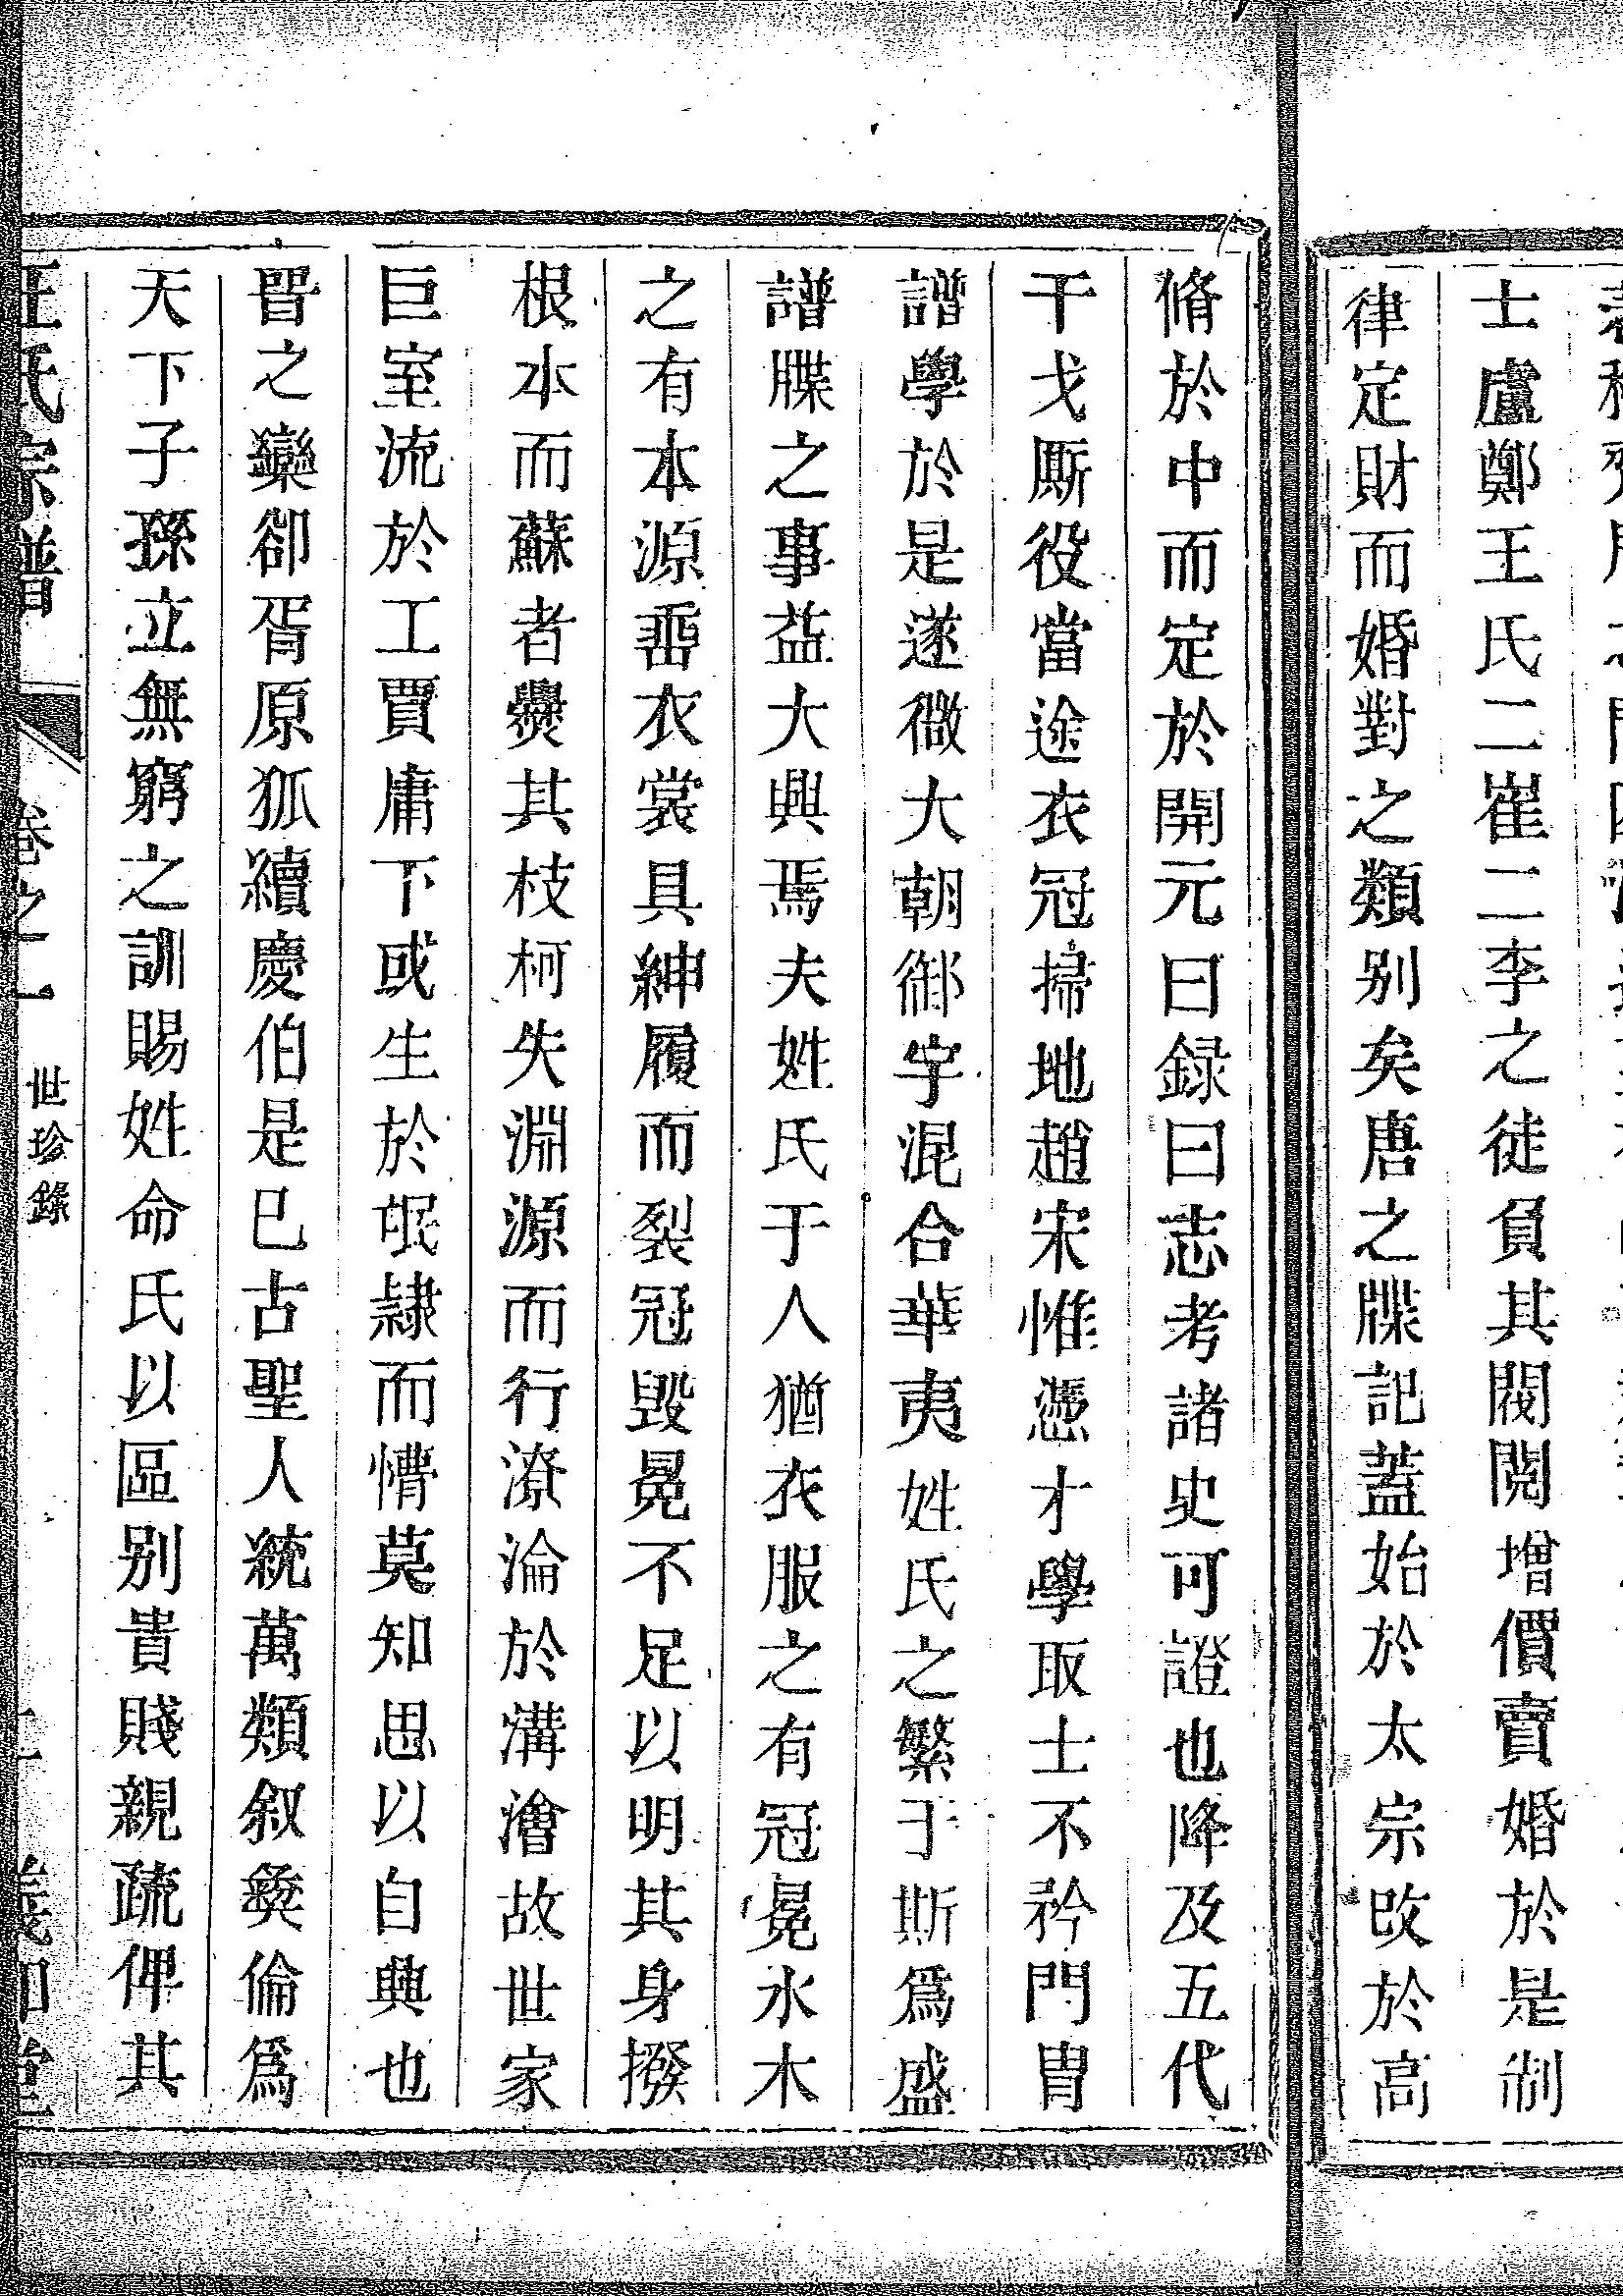 士盧鄭王氏二崔二李之徒負其閥閱增價賣婚於是制
律定財而婚對之類别矣唐之牒記蓋始於太宗改於高
脩於中而定於開元曰録曰志考諸史可證也降及五代
干戈厮役當途衣冠掃地趙宋惟憑才學取士不矜門胄
譜學於是遂微大朝御宇混合華夷姓氏之繁于斯爲盛
譜牒之事益大興焉夫姓氏于人猶衣服之有冠冕水木
之有本源垂衣裳具紳履而裂冠毁冕不足以明其身撥
根本而蘇者爨其枝柯失淵源而行潦淪於溝澮故世家
巨室流於工賈庸下或生於氓隷而懵莫知思以自興也
晋之欒郤胥原狐續慶伯是巳古聖人統萬類叙彜倫爲
天下子孫立無窮之訓賜姓命氏以區别貴賤親疏俾其
王氏宗譜 卷之一 世珍錄